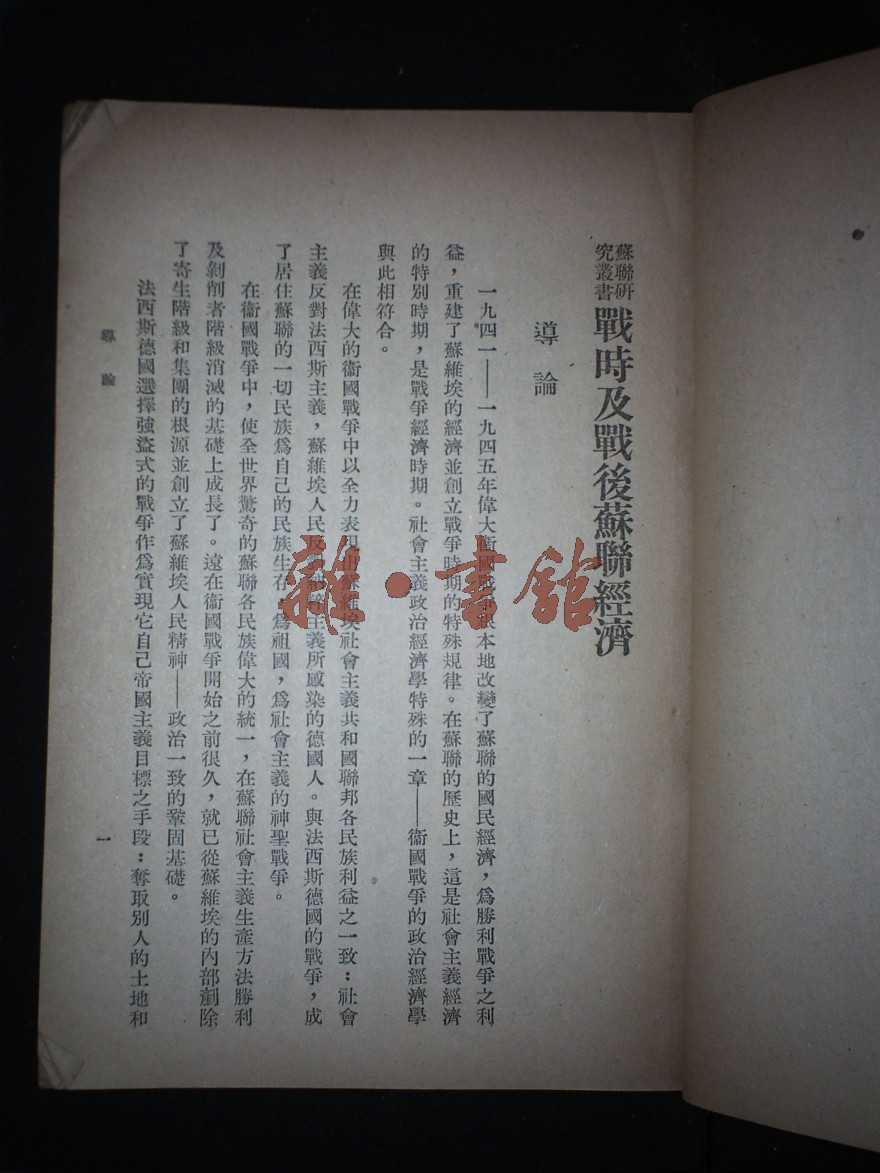 蘇聯研
究叢書
戰時及戰後蘇聯經濟
導論
一九四一——一九四五年偉大衞國戰爭根本地改變了蘇聯的國民經濟，爲勝利戰爭之利
益，重建了蘇維埃的經濟並創立戰爭時期的特殊規律。在蘇聯的歷史上，這是社會主義經濟
的特別時期，是戰爭經濟時期。社會主義政治經濟學特殊的一章——衞國戰爭的政治經濟學
與此相符合。
在偉大的衞國戰爭中以全力表現出蘇維埃社會主義共和國聯邦各民族利益之一致：社會
主義反對法西斯主義，蘇維埃人民反對納粹主義所感染的德國人。與法西斯德國的戰爭，成
了居住蘇聯的一切民族爲自己的民族生存，爲祖國，爲社會主義的神聖戰爭。
在衞國戰爭中，使全世界驚奇的蘇聯各民族偉大的統一，在蘇聯社會主義生產方法勝利
及剝削者階級消滅的基礎上成長了。遠在衞國戰爭開始之前很久，就已從蘇維埃的內部剷除
了寄生階級和集團的根源並創立了蘇維埃人民精神——政治一致的鞏固基礎。
法西斯德國選擇強盜式的戰爭作爲實現它自己帝國主義目標之手段：奪取別人的土地和
導論
一
雜·書館